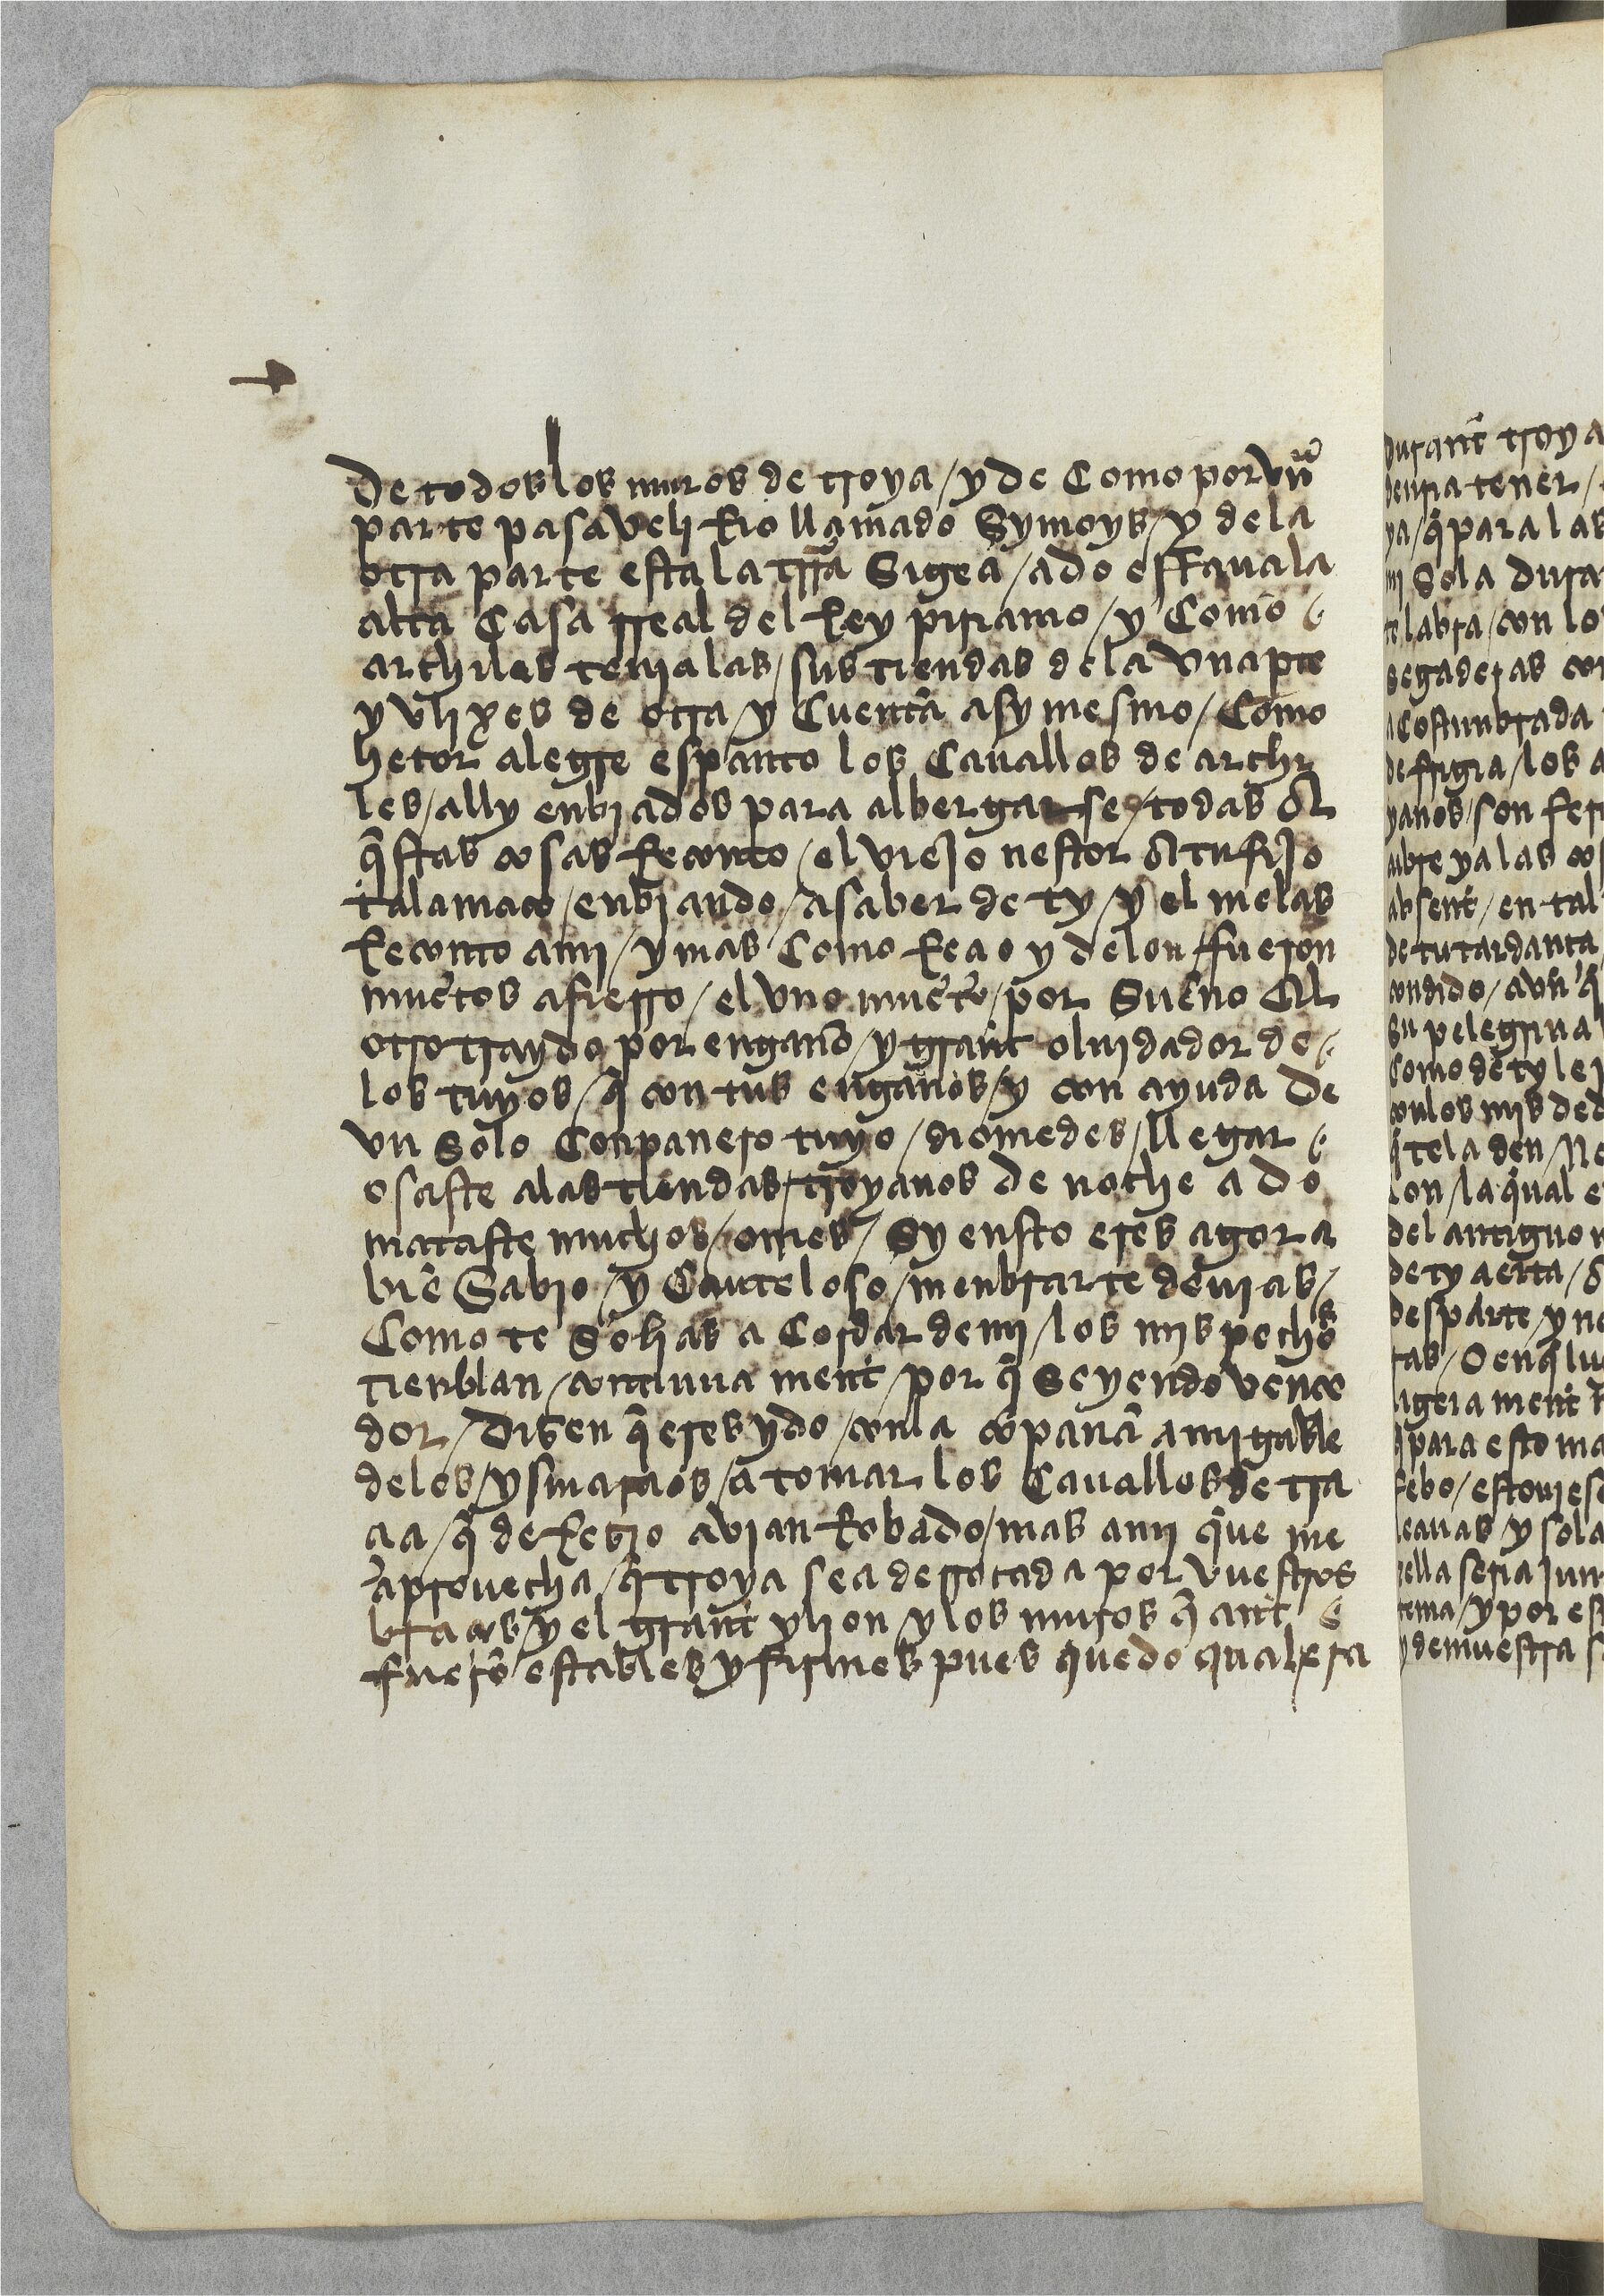 De todos los muros de troya / y de Como por vnᵃ
parte pasa veli Rio llamado Symoys / y de la
otra parte esta la trrã Sigea / ado estaua la
alta Casa rreal del Rey priamo / y Como
archiles tenia las / sus tiendas de la vna pte
y vlixes de otra / y Cuentã asy mesmo / Como
hetor alegre espanto los Cauallos de archi
les / ally enbiados para albergarse / todas a
q̃stas cosas Reconto / el viejo nestor a tu fijo
talamaco / enbiando / a saber de ty / y el melas
Reconto a mi / y mas Como Reço y delon / fueron
muertos a fierro / el vno muerto / por Sueno El
otro traydo por engano / y grant oluidador de
los tuyos / q̃ con tus enganos / y con ayuda De
vn Solo Conpanero tuyo / diomedes / llegar
osaste a las tiendas / troyanos de noche a do
mataste muchos / omes / Sy ensto eres agora
biẽ Sabio / y Cauteloso / menbrarte deuias /
Como te Solias a Cordar de mi / los mis pechos
tienblan / continua ment / por q̃ Seyendo vence
dor / Dizen q̃ eres ydo / con la cõpanã amigable
de los / ysmaraos / a tomar los Cauallos de tra
çia / q̃ de Resio avian Robado / mas a mi que me
aprouecha / q̃ troya sea derrocada por vuestros
braços / y el grant ylion / y los muros q̃ ant
fuerõ estables y firmes pues quedo qual era
durant troya
deuria tener /
ya / q̃ para las
mi Sola Dura
labra / con lo
segaderas con
acostunbrada
de frigia / los a
yanos / son fer
cubre ya las cos
absent / en tal
de tu tardança
condido / avn q̃
Su pelegrina
Como de ty le
con los mis ded
q̃ te la den / Ne
lon / la qual e
del antiguo n
de ty aerta /
desparte / y no
tas / O en q̃ lu
ligera ment
q̃ para esto ma
febo / estouies
leauas y sola
rella seria jun
tema / y por es
y demuestra s